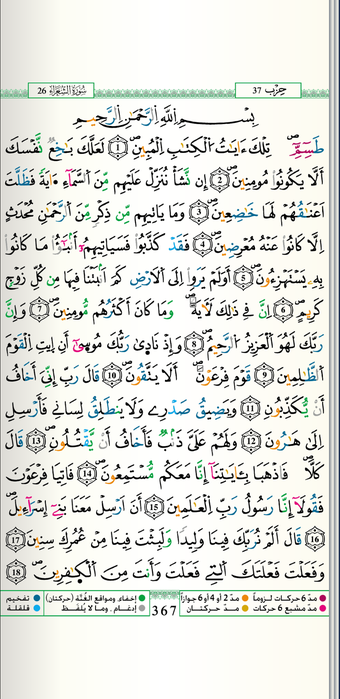 حِزْب 37
سُورَةُ الشُّعَرَاءِ 26
بِسْمِ اِللَّهِ اِلرَّحْمَٰنِ اِلرَّحِيمِ
طَسِٓمِّٓۖ تِلْكَ ءَايَٰتُ اُلْكِتَٰبِ اِلْمُبِينِۖ ١ لَعَلَّكَ بَٰخِعٞ نَّفْسَكَ
أَلَّا يَكُونُواْ مُومِنِينَۖ ٢ إِن نَّشَأْ نُنَزِّلْ عَلَيْهِم مِّنَ اَلسَّمَآءِ ءَايَةٗ فَظَلَّتَ
اَعْنَٰقُهُمْ لَهَا خَٰضِعِينَۖ ٣ وَمَا يَاتِيهِم مِّن ذِكْرٖ مِّنَ اَلرَّحْمَٰنِ مُحْدَثٍ
اِلَّا كَانُواْ عَنْهُ مُعْرِضِينَۖ ٤ فَقَدْ كَذَّبُواْ فَسَيَاتِيهِمُۥٓ أَنۢبَٰٓؤُاْ مَا كَانُواْ
بِهِۦ يَسْتَهْزِءُونَۖ ٥ أَوَلَمْ يَرَوِاْ اِلَى اَلَارْضِ كَمَ اَنۢبَتْنَا فِيهَا مِن كُلِّ زَوْجٖ
كَرِيمٍۖ ٦ اِنَّ فِے ذَٰلِكَ لَأٓيَةٗۖ وَمَا كَانَ أَكْثَرُهُم مُّومِنِينَۖ ٧ وَإِنَّ
رَبَّكَ لَهُوَ اَلْعَزِيزُ اُلرَّحِيمُۖ ٨ وَإِذْ نَادَىٰ رَبُّكَ مُوسَىٰٓ أَنِ اِيتِ اِلْقَوْمَ
اَلظَّٰلِمِينَ ٩ قَوْمَ فِرْعَوْنَۖ أَلَا يَتَّقُونَۖ ١٠ قَالَ رَبِّ إِنِّيَ أَخَافُ
أَنْ يُّكَذِّبُونِ ١١ وَيَضِيقُ صَدْرِے وَلَا يَنطَلِقُ لِسَانِے فَأَرْسِلِ
اِلَىٰ هَٰرُونَۖ ١٢ وَلَهُمْ عَلَيَّ ذَنۢبٞ فَأَخَافُ أَنْ يَّقْتُلُونِۖ ١٣ قَالَ
كَلَّاۖ فَاذْهَبَا بِـَٔايَٰتِنَآ إِنَّا مَعَكُم مُّسْتَمِعُونَۖ ١٤ فَاتِيَا فِرْعَوْنَ
فَقُولَآ إِنَّا رَسُولُ رَبِّ اِلْعَٰلَمِينَ ١٥ أَنَ اَرْسِلْ مَعَنَا بَنِےٓ إِسْرَآءِيلَۖ
١٦ قَالَ أَلَمْ نُرَبِّكَ فِينَا وَلِيداٗ وَلَبِثْتَ فِينَا مِنْ عُمُرِكَ سِنِينَۖ ١٧
وَفَعَلْتَ فَعْلَتَكَ اَلتِے فَعَلْتَ وَأَنتَ مِنَ اَلْكٰ۪فِرِينَۖ ١٨
مدّ 6 حركات لزوماً مدّ 2 أو 4 أو 6 جوازاً إخفاء ومواقع الغُنّة (حركتان) تفخيم
مدّ مشبع 6 حركات مدّ حركتان إدغام، وما لا يُلفَظ قلقلة
367